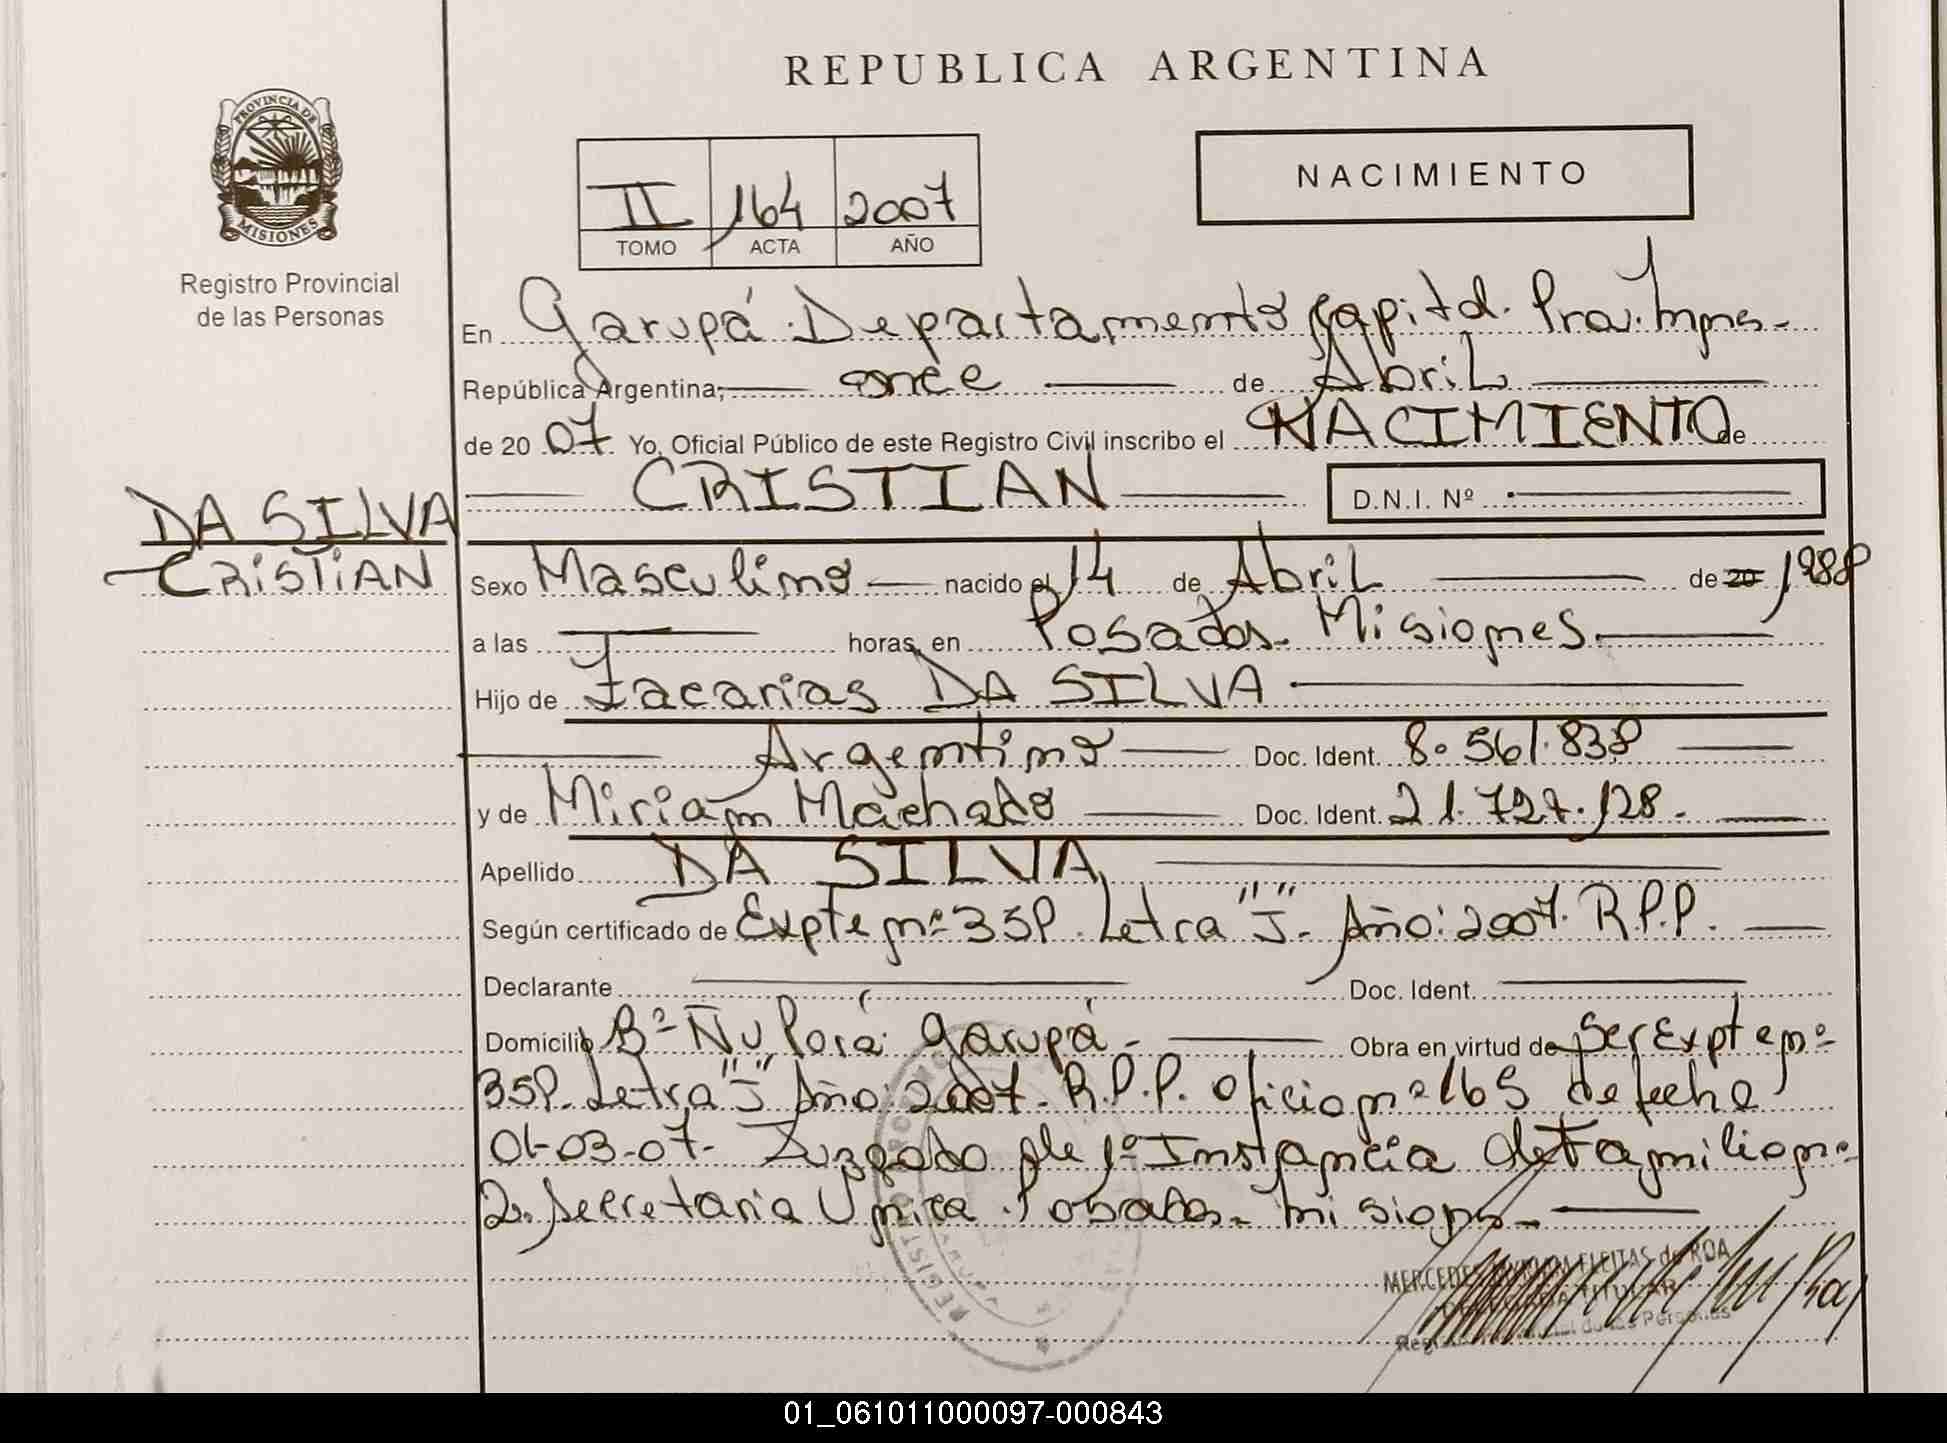 REPUBLICA ARGENTINA
PROVINCIA DE
MISIONES
Registro Provincial
de las Personas
II 164 2007
TOMO ACTA AÑO
NACIMIENTO
En Garupá. Departamento Capital. Prov. Mnes.
República Argentina, once de Abril
de 2007 Yo, Oficial Público de este Registro Civil inscribo el NACIMIENTO de
CRISTIAN D.N.I. Nº
DA SILVA
CRISTIAN
Sexo Masculino nacido el 14 de Abril de 20 1988
a las horas, en Posadas. Misiones.
Hijo de Zacarias DA SILVA
Argentino Doc. Ident. 8.561.838
y de Miriam Machado Doc. Ident. 21.727.128.
Apellido DA SILVA
Según certificado de Expte nº 358. Letra "J". Año: 2007. R.P.P.
Declarante Doc. Ident.
Domicilio Bº Ñu Porá Garupá. Obra en virtud de Ser Expte nº
358. Letra "J" Año: 2007. R.P.P. Oficio nº 165 de fecha
01-03-07. Juzgado de 1º Instancia de Familia nº
2. Secretaria Unica. Posadas. Misiones.
MERCEDES FLEITAS de ROA
TITULAR
de las Personas
01_061011000097-000843